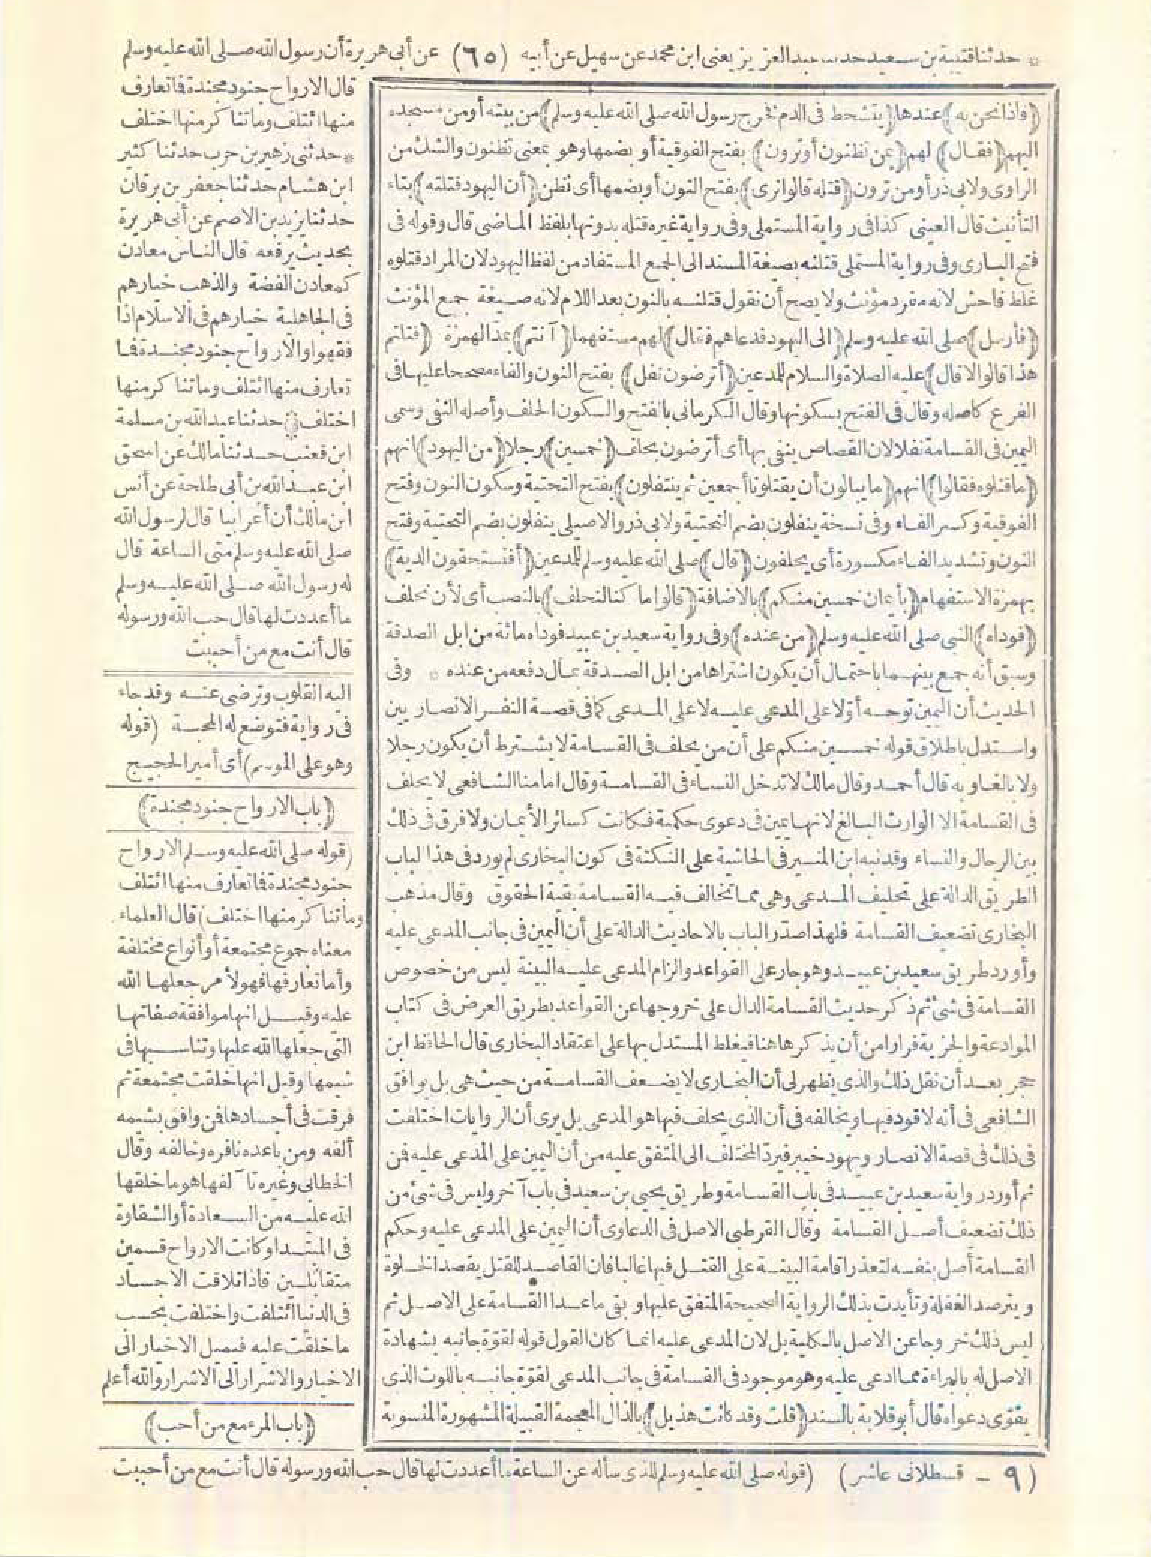 * حدثنا قتيبة بن سعيد حدثنا عبد العزيز يعنى ابن محمد عن سهيل عن أبيه (٦٥) عن أبى هريرة أن رسول الله صلى الله عليه وسلم
قال الارواح جنود مجندة فما تعارف
منها ائتلف وما تناكر منها اختلف
* حدثنى زهير بن حرب حدثنا كثير
ابن هشام حدثنا جعفر بن برقان
حدثنا يزيد بن الاصم عن أبى هريرة
بحديث يرفعه قال الناس معادن
كمعادن الفضة والذهب خيارهم
فى الجاهلية خيارهم فى الاسلام اذا
فقهوا والارواح جنود مجندة فما
تعارف منها ائتلف وما تناكر منها
اختلف حدثنا عبد الله بن مسلمة
ابن قعنب حدثنا مالك عن اسحق
ابن عبد الله بن أبى طلحة عن أنس
ابن مالك أن أعرابيا قال لرسول الله
صلى الله عليه وسلم متى الساعة قال
له رسول الله صلى الله عليه وسلم
ما أعددت لها قال حب الله ورسوله
قال أنت مع من أحببت
اليه القلوب وترضى عنه وقد جاء
فى رواية فتوضع له المحبة (قوله
وهو على الموسم) أى أمير الحجيج
(باب الارواح جنود مجندة)
(قوله صلى الله عليه وسلم الارواح
جنود مجندة فما تعارف منها ائتلف
وما تناكر منها اختلف) قال العلماء
معناه جموع مجتمعة أو أنواع مختلفة
وأما تعارفها فهو لأمر جعلها الله
عليه وقيل انها موافقة صفاتها
التى جعلها الله عليها وتناسبها فى
شيمها وقيل انها خلقت مجتمعة ثم
فرقت فى أجسادها فمن وافق بشيمه
ألفه ومن باعده نافره وخالفه وقال
الخطابى وغيره تآلفها هو ما خلقها
الله عليه من السعادة أو الشقاوة
فى المبتدا وكانت الارواح قسمين
متقابلين فاذا تلاقت الاجساد
فى الدنيا ائتلفت واختلفت بحسب
ما خلقت عليه فيميل الاخيار الى
الاخيار والاشرار الى الاشرار والله أعلم
(باب المرء مع من أحب)
(فاذا نحن به) عندها (يتشحط فى الدم فخرج رسول الله صلى الله عليه وسلم) من بيته أو من مسجده
اليهم (فقال) لهم (بمن تظنون أو ترون) بفتح الفوقية أو بضمها وهو بمعنى تظنون والشك من
الراوى ولابى ذر أو من ترون (قتله قالوا نرى) بفتح النون أو بضمها أى نظن (أن اليهود قتلته) بتاء
التأنيث قال العينى كذا فى رواية المستملى وفى رواية غيره قتله بدونها بلفظ الماضى قال وقوله فى
فتح البارى وفى رواية المستملى قتلنه بصيغة المسند الى الجمع المستفاد من لفظ اليهود لان المراد قتلوه
غلط فاحش لانه مفرد مؤنث ولا يصح أن نقول قتلنه بالنون بعد اللام لانه صيغة جمع المؤنث
(فأرسل) صلى الله عليه وسلم (الى اليهود فدعاهم فقال) لهم مستفهما (آنتم) بمد الهمزة (قتلتم
هذا قالوا لا قال) عليه الصلاة والسلام للمدعين (أترضون نفل) بفتح النون والفاء مصححا عليها فى
الفرع كاصله وقال فى الفتح بسكونها وقال الكرمانى بالفتح والسكون الحلف وأصله النفى وسمى
اليمين فى القسامة نفلا لان القصاص ينفى بها أى أترضون بحلف (خمسين) رجلا (من اليهود) انهم
(ما قتلوه فقالوا) انهم (ما يبالون أن يقتلونا أجمعين ثم ينتفلون) بفتح التحتية وسكون النون وفتح
الفوقية وكسر الفاء وفى نسخة ينفلون بضم التحتية ولابى ذر والاصيلى ينفلون بضم التحتية وفتح
النون وتشديد الفاء مكسورة أى يحلفون (قال) صلى الله عليه وسلم للمدعين (أفتستحقون الدية)
بهمزة الاستفهام (بأيمان خمسين منكم) بالاضافة (قالوا ما كنا لنحلف) بالنصب أى لأن نحلف
(فوداه) النبى صلى الله عليه وسلم (من عنده) وفى رواية سعيد بن عبيد فوداه مائة من ابل الصدقة
وسبق أنه جمع بينهما باحتمال أن يكون اشتراها من ابل الصدقة بمال دفعه من عنده * وفى
الحديث أن اليمين توجه أولا على المدعى عليه لا على المدعى كما فى قصة النفر الانصاريين
واستدل باطلاق قوله خمسين منكم على أن من يحلف فى القسامة لا يشترط أن يكون رجلا
ولا بالغا وبه قال أحمد وقال مالك لا تدخل النساء فى القسامة وقال امامنا الشافعى لا يحلف
فى القسامة الا الوارث البالغ لانها يمين فى دعوى حكمية فكانت كسائر الأيمان ولا فرق فى ذلك
بين الرجال والنساء وقد نبه ابن المنير فى الحاشية على النكتة فى كون البخارى لم يورد فى هذا الباب
الطريق الدالة على تحليف المدعى وهى مما تخالف فيه القسامة بقية الحقوق وقال مذهب
البخارى تضعيف القسامة فلهذا صدر الباب بالاحاديث الدالة على أن اليمين فى جانب المدعى عليه
وأورد طريق سعيد بن عبيد وهو جار على القواعد والزام المدعى عليه البينة ليس من خصوص
القسامة فى شئ ثم ذكر حديث القسامة الدال على خروجها عن القواعد بطريق العرض فى كتاب
الموادعة والجزية فرارا من أن يذكرها هنا فيغلط المستدل بها على اعتقاد البخارى قال الحافظ ابن
حجر بعد أن نقل ذلك والذى يظهر لى أن البخارى لا يضعف القسامة من حيث هى بل يوافق
الشافعى فى أنه لا قود فيها ويخالفه فى أن الذى يحلف فيها هو المدعى بل يرى أن الروايات اختلفت
فى ذلك فى قصة الانصار ويهود خيبر فيرد المختلف الى المتفق عليه من أن اليمين على المدعى عليه فمن
ثم أورد رواية سعيد بن عبيد فى باب القسامة وطريق يحيى بن سعيد فى باب آخر وليس فى شئ من
ذلك تضعيف أصل القسامة وقال القرطبى الاصل فى الدعاوى أن اليمين على المدعى عليه وحكم
القسامة أصل بنفسه لتعذر اقامة البينة على القتل فيها غالبا فان القاصد للقتل يقصد الخلوة
ويترصد الغفلة وتأيدت بذلك الرواية الصحيحة المتفق عليها وبقى ما عدا القسامة على الاصل ثم
ليس ذلك خروجا عن الاصل بالكلية بل لان المدعى عليه انما كان القول قوله لقوة جانبه بشهادة
الاصل له بالبراءة مما ادعى عليه وهو موجود فى القسامة فى جانب المدعى لقوة جانبه باللوث الذى
يقوى دعواه قال أبو قلابة بالسند (قلت وقد كانت هذيل) بالذال المعجمة القبيلة المشهورة المنسوبة
(٩ - قسطلانى عاشر) (قوله صلى الله عليه وسلم للذى سأله عن الساعة ما أعددت لها قال حب الله ورسوله قال أنت مع من أحببت